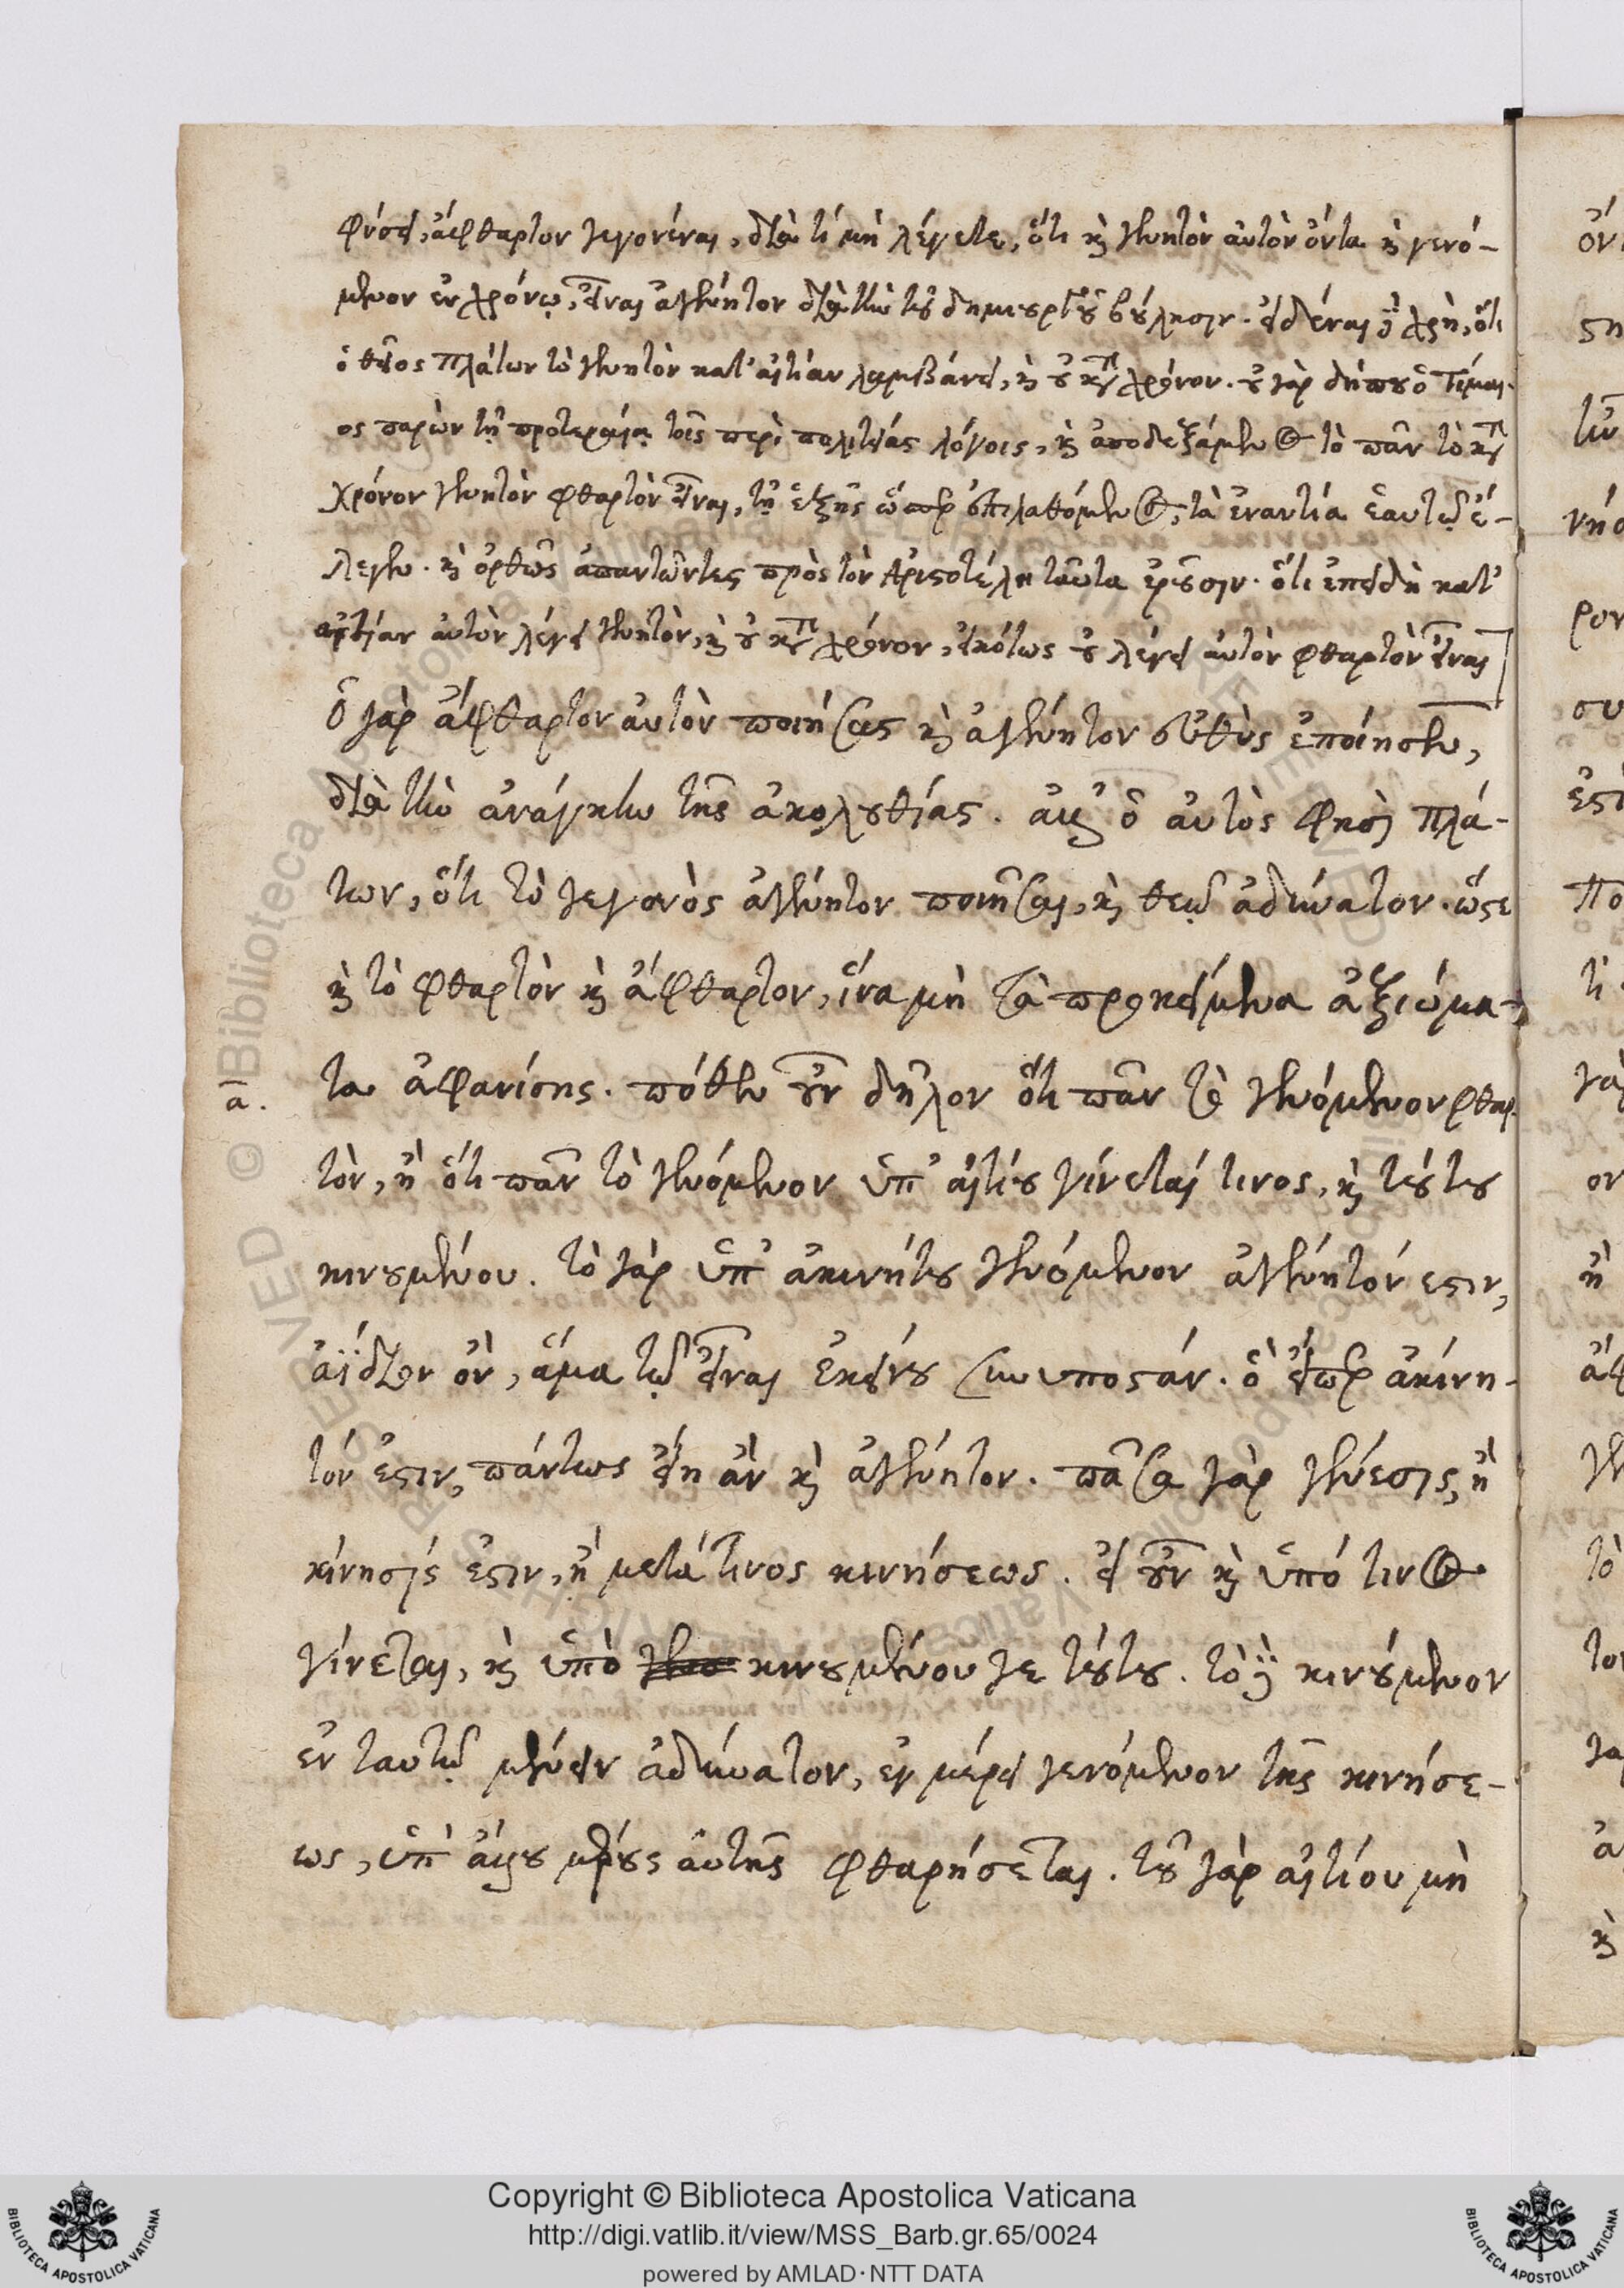 φύσει, ἄφθαρτον γεγονέναι, διὰ τί μὴ λέγετε, ὅτι κ̀ γενητὸν αὐτὸν ὄντα κ̀ γενό-
μενον ἐν χρόνῳ, εἶναι ἀγένητον διὰ τὴν τοῦ δημιουργοῦ βούλησιν. εἰδέναι δὲ χρὴ, ὅτι
ὁ θεῖος πλάτων τὸ γενητὸν κατ' αἰτίαν λαμβάνει, κ̀ οὐ κατὰ χρόνον. οὐ γὰρ δήπου ὁ Τίμαι-
ος παρὼν τῇ προτεραίᾳ τοῖς περὶ πολιτείας λόγοις, κ̀ ἀποδεξάμενος τὸ πᾶν τὸ κατὰ
χρόνον γενητὸν φθαρτὸν εἶναι, τῇ ἑξῆς ὥσπερ ἐπιλαθόμενος, τὰ ἐναντία ἑαυτῷ ἔ-
λεγεν. κ̀ ὀρθῶς ἀπαντῶντες πρὸς τὸν Ἀριστοτέλη ταῦτα ἐροῦσιν. ὅτι ἐπειδὴ κατ'
αἰτίαν αὐτὸν λέγει γενητὸν, κ̀ οὐ κατὰ χρόνον, εἰκότως οὐ λέγει αὐτὸν φθαρτὸν εἶναι
ὁ γὰρ ἄφθαρτον αὐτὸν ποιήσας κ̀ ἀγένητον εὐθὺς ἐποίησεν,
διὰ τὴν ἀνάγκην τῆς ἀκολουθίας. ἀλλ' ὃ αὐτὸς φησὶ πλά-
των, ὅτι τὸ γεγονὸς ἀγένητον ποιῆσαι, κ̀ θεῷ ἀδύνατον. ὥστε
κ̀ τὸ φθαρτὸν κ̀ ἄφθαρτον, ἵνα μὴ τὰ προκείμενα ἀξιώμα-
τα ἀφανίσῃς. πόθεν οὖν δῆλον ὅτι πᾶν τὸ γενόμενον φθαρ-
α.
τὸν, ἢ ὅτι πᾶν τὸ γενόμενον ὑπ' αἰτίου γίνεταί τινος, κ̀ τούτου
κινουμένου. τὸ γὰρ ὑπ' ἀκινήτου γενόμενον ἀγένητόν ἐστιν,
ἀΐδιον ὂν, ἅμα τῷ εἶναι ἐκείνου συνυποστάν. ὃ εἴπερ ἀκίνη-
τόν ἐστιν, πάντως εἴη ἂν κ̀ ἀγένητον. πᾶσα γὰρ γένεσις, ἢ
κίνησίς ἐστιν, ἢ μετά τινος κινήσεως. εἰ οὖν κ̀ ὑπό τινος
γίνεται, κ̀ ὑπὸ κινουμένου γε τούτου. τὸ δὲ κινούμενον
ἐν ταυτῷ μένειν ἀδύνατον, ἐν μέρει γενόμενον τῆς κινήσε-
ως, ὑπ' ἄλλου μέρους αὐτῆς φθαρήσεται. τοῦ γὰρ αἰτίου μὴ
Copyright © Biblioteca Apostolica Vaticana
http://digi.vatlib.it/view/MSS_Barb.gr.65/0024
powered by AMLAD·NTT DATA
BIBLIOTECA APOSTOLICA VATICANA
BIBLIOTECA APOSTOLICA VATICANA